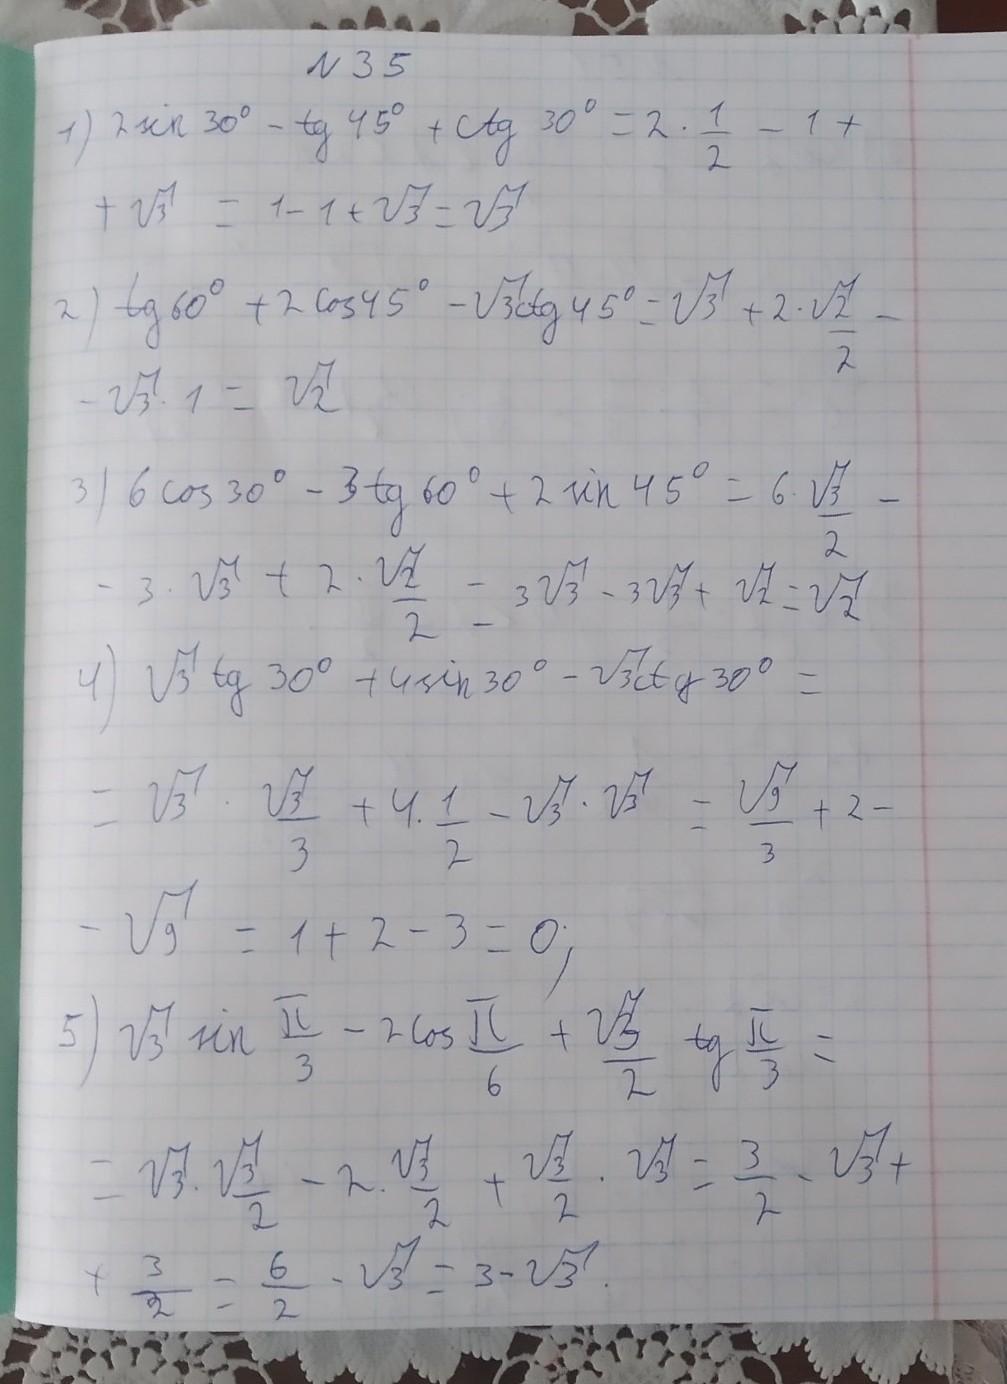 N 35
1) 2 sin 30° - tg 45° + ctg 30° = 2 · 1/2 - 1 +
+ √3 = 1 - 1 + √3 = √3
2) tg 60° + 2 cos 45° - √3 ctg 45° = √3 + 2 · √2/2 -
- √3 · 1 = √2
3) 6 cos 30° - 3 tg 60° + 2 sin 45° = 6 · √3/2 -
- 3 · √3 + 2 · √2/2 = 3√3 - 3√3 + √2 = √2
4) √3 tg 30° + 4 sin 30° - √3 ctg 30° =
= √3 · √3/3 + 4 · 1/2 - √3 · √3 = √9/3 + 2 -
- √9 = 1 + 2 - 3 = 0;
5) √3 sin π/3 - 2 cos π/6 + √3/2 tg π/3 =
= √3 · √3/2 - 2 · √3/2 + √3/2 · √3 = 3/2 - √3 +
+ 3/2 = 6/2 - √3 = 3 - √3.